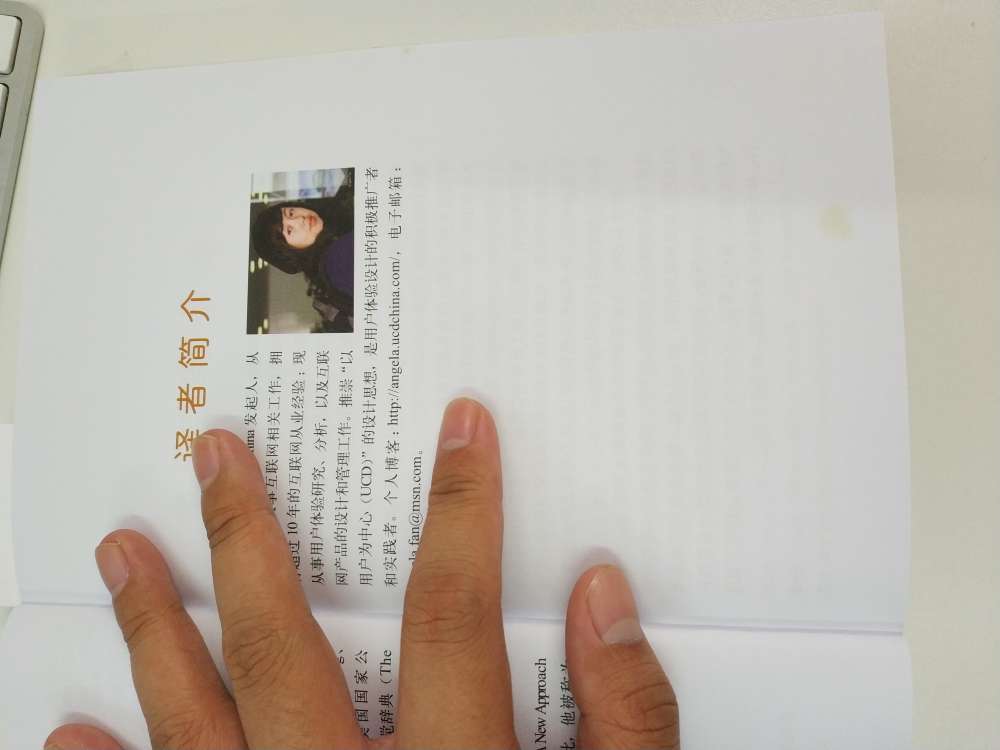 译者简介
ina 发起人，从
事互联网相关工作，拥
超过 10 年的互联网从业经验；现
从事用户体验研究、分析，以及互联
网产品的设计和管理工作。推崇“以
用户为中心（UCD）”的设计思想，是用户体验设计的积极推广者
和实践者。个人博客：http://angela.ucdchina.com/，电子邮箱：
la.fan@msn.com。
国国家公
觉辞典（The
A New Approach
，他被称为